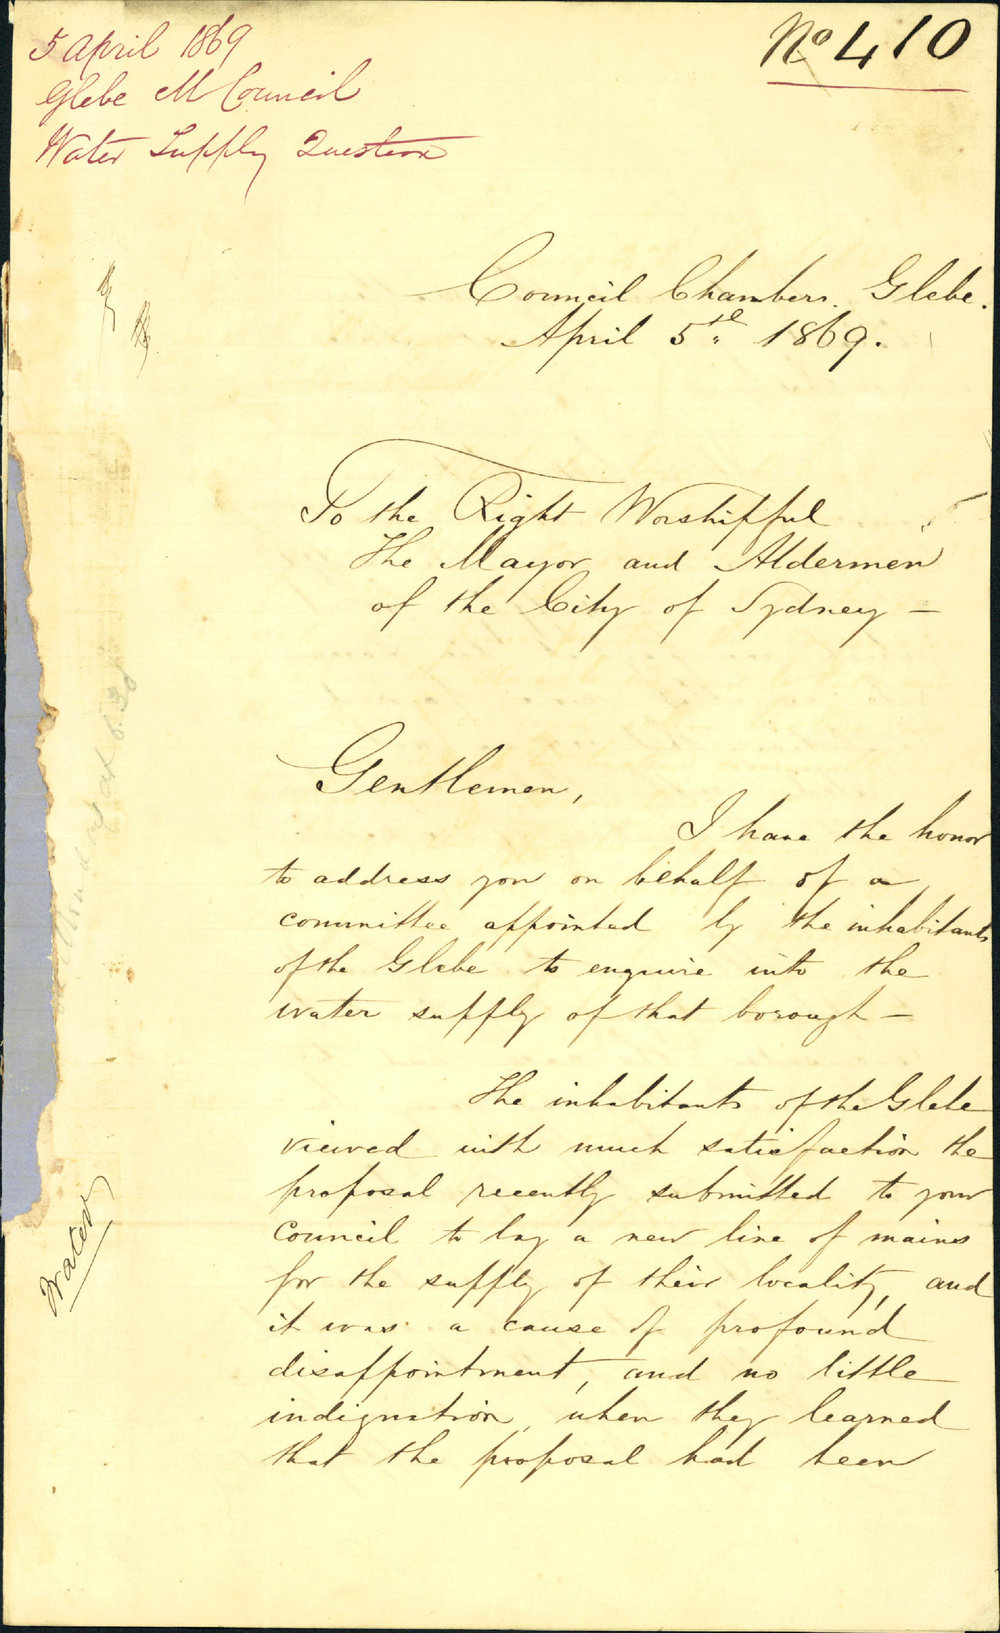 5 April 1869
Glebe M Council
Water Supply Question
No 410
Council Chambers. Glebe.
April 5th 1869.
To the Right Worshipful
The Mayor and Aldermen
of the City of Sydney —
Gentlemen,
I have the honor
to address you on behalf of a
committee appointed by the inhabitants
of the Glebe to enquire into the
water supply of that borough —
The inhabitants of the Glebe
viewed with much satisfaction the
proposal recently submitted to your
Council to lay a new line of mains
for the supply of their locality, and
it was a cause of profound
disappointment, and no little
indignation, when they learned
that the proposal had been
Water